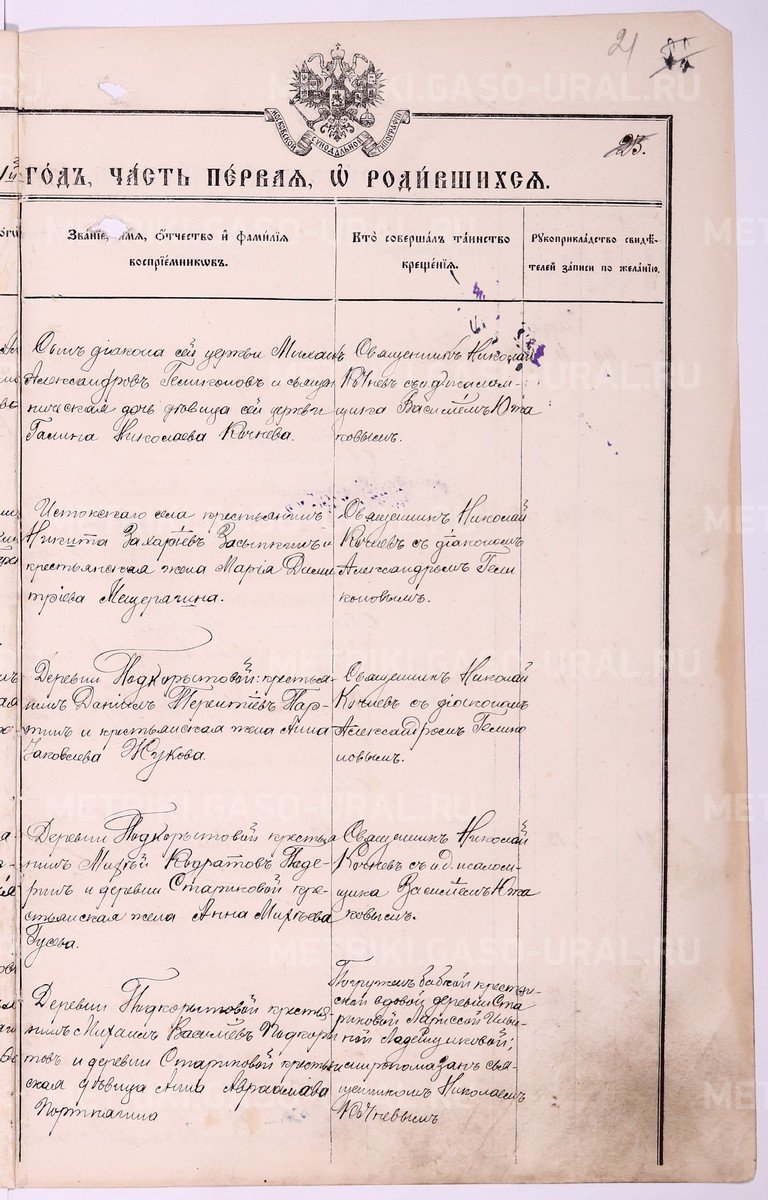 21
25.
МОСКОВСКОЙ СѴНОДАЛЬНОЙ ТИПОГРАФІИ
го́дъ, ча́сть пе́рвая, ѡ҆ роди́вшихся.
Зва́нїе, и҆́мя, ѻ҆́тчество и҆ фами́лїя
воспрїе́мникѡвъ.
Кто̀ соверша́лъ та́инство
креще́нїя.
Рꙋкоприкла́дство свидѣ́-
телей за́писи по жела́нїю.
Сынъ діакона сей церкви Михаилъ
Александровъ Геликоновъ и свящ
ническая дочь дѣвица сей церкви
Галина Николаева Кочнева.
Священникъ Николай
Кочневъ съ и д псалом-
щика Василіемъ Южа
ковымъ.
Истокскаго села крестьянинъ
Никита Захаріевъ Засыпкинъ и
крестьянская жена Марія Дими
тріева Мещерагина.
Священникъ Николай
Кочневъ съ діакономъ
Александромъ Гели
коновымъ.
Деревни Подкорытовой крестья
нинъ Даніилъ Терентіевъ Пар-
шинъ и крестьянская жена Анна
Іаковлева Жукова.
Священникъ Николай
Кочневъ съ діакономъ
Александромъ Гелико
новымъ.
Деревни Подкорытовой крестья
нинъ Кодратовъ Паде-
ринъ и деревни Стариковой кре-
стьянская жена Анна
Гусева.
Священникъ Николай
Кочневъ съ и д псалом-
щика Василіемъ Южа
ковымъ.
Деревни Подкорытовой кресть
нинъ Михаилъ Василіевъ Подкоры
товъ и деревни Стариковой крестьян
ская дѣвица Анна Авраамова
Портнягина
Погруженъ бабкой крестьян
ской вдовой деревни Ста
риковой Ларисой Ива
ной Ладейщиковой;
миропомазанъ свя-
щенникомъ Николаемъ
Кочневымъ
METRIKI.GASO-URAL.RU